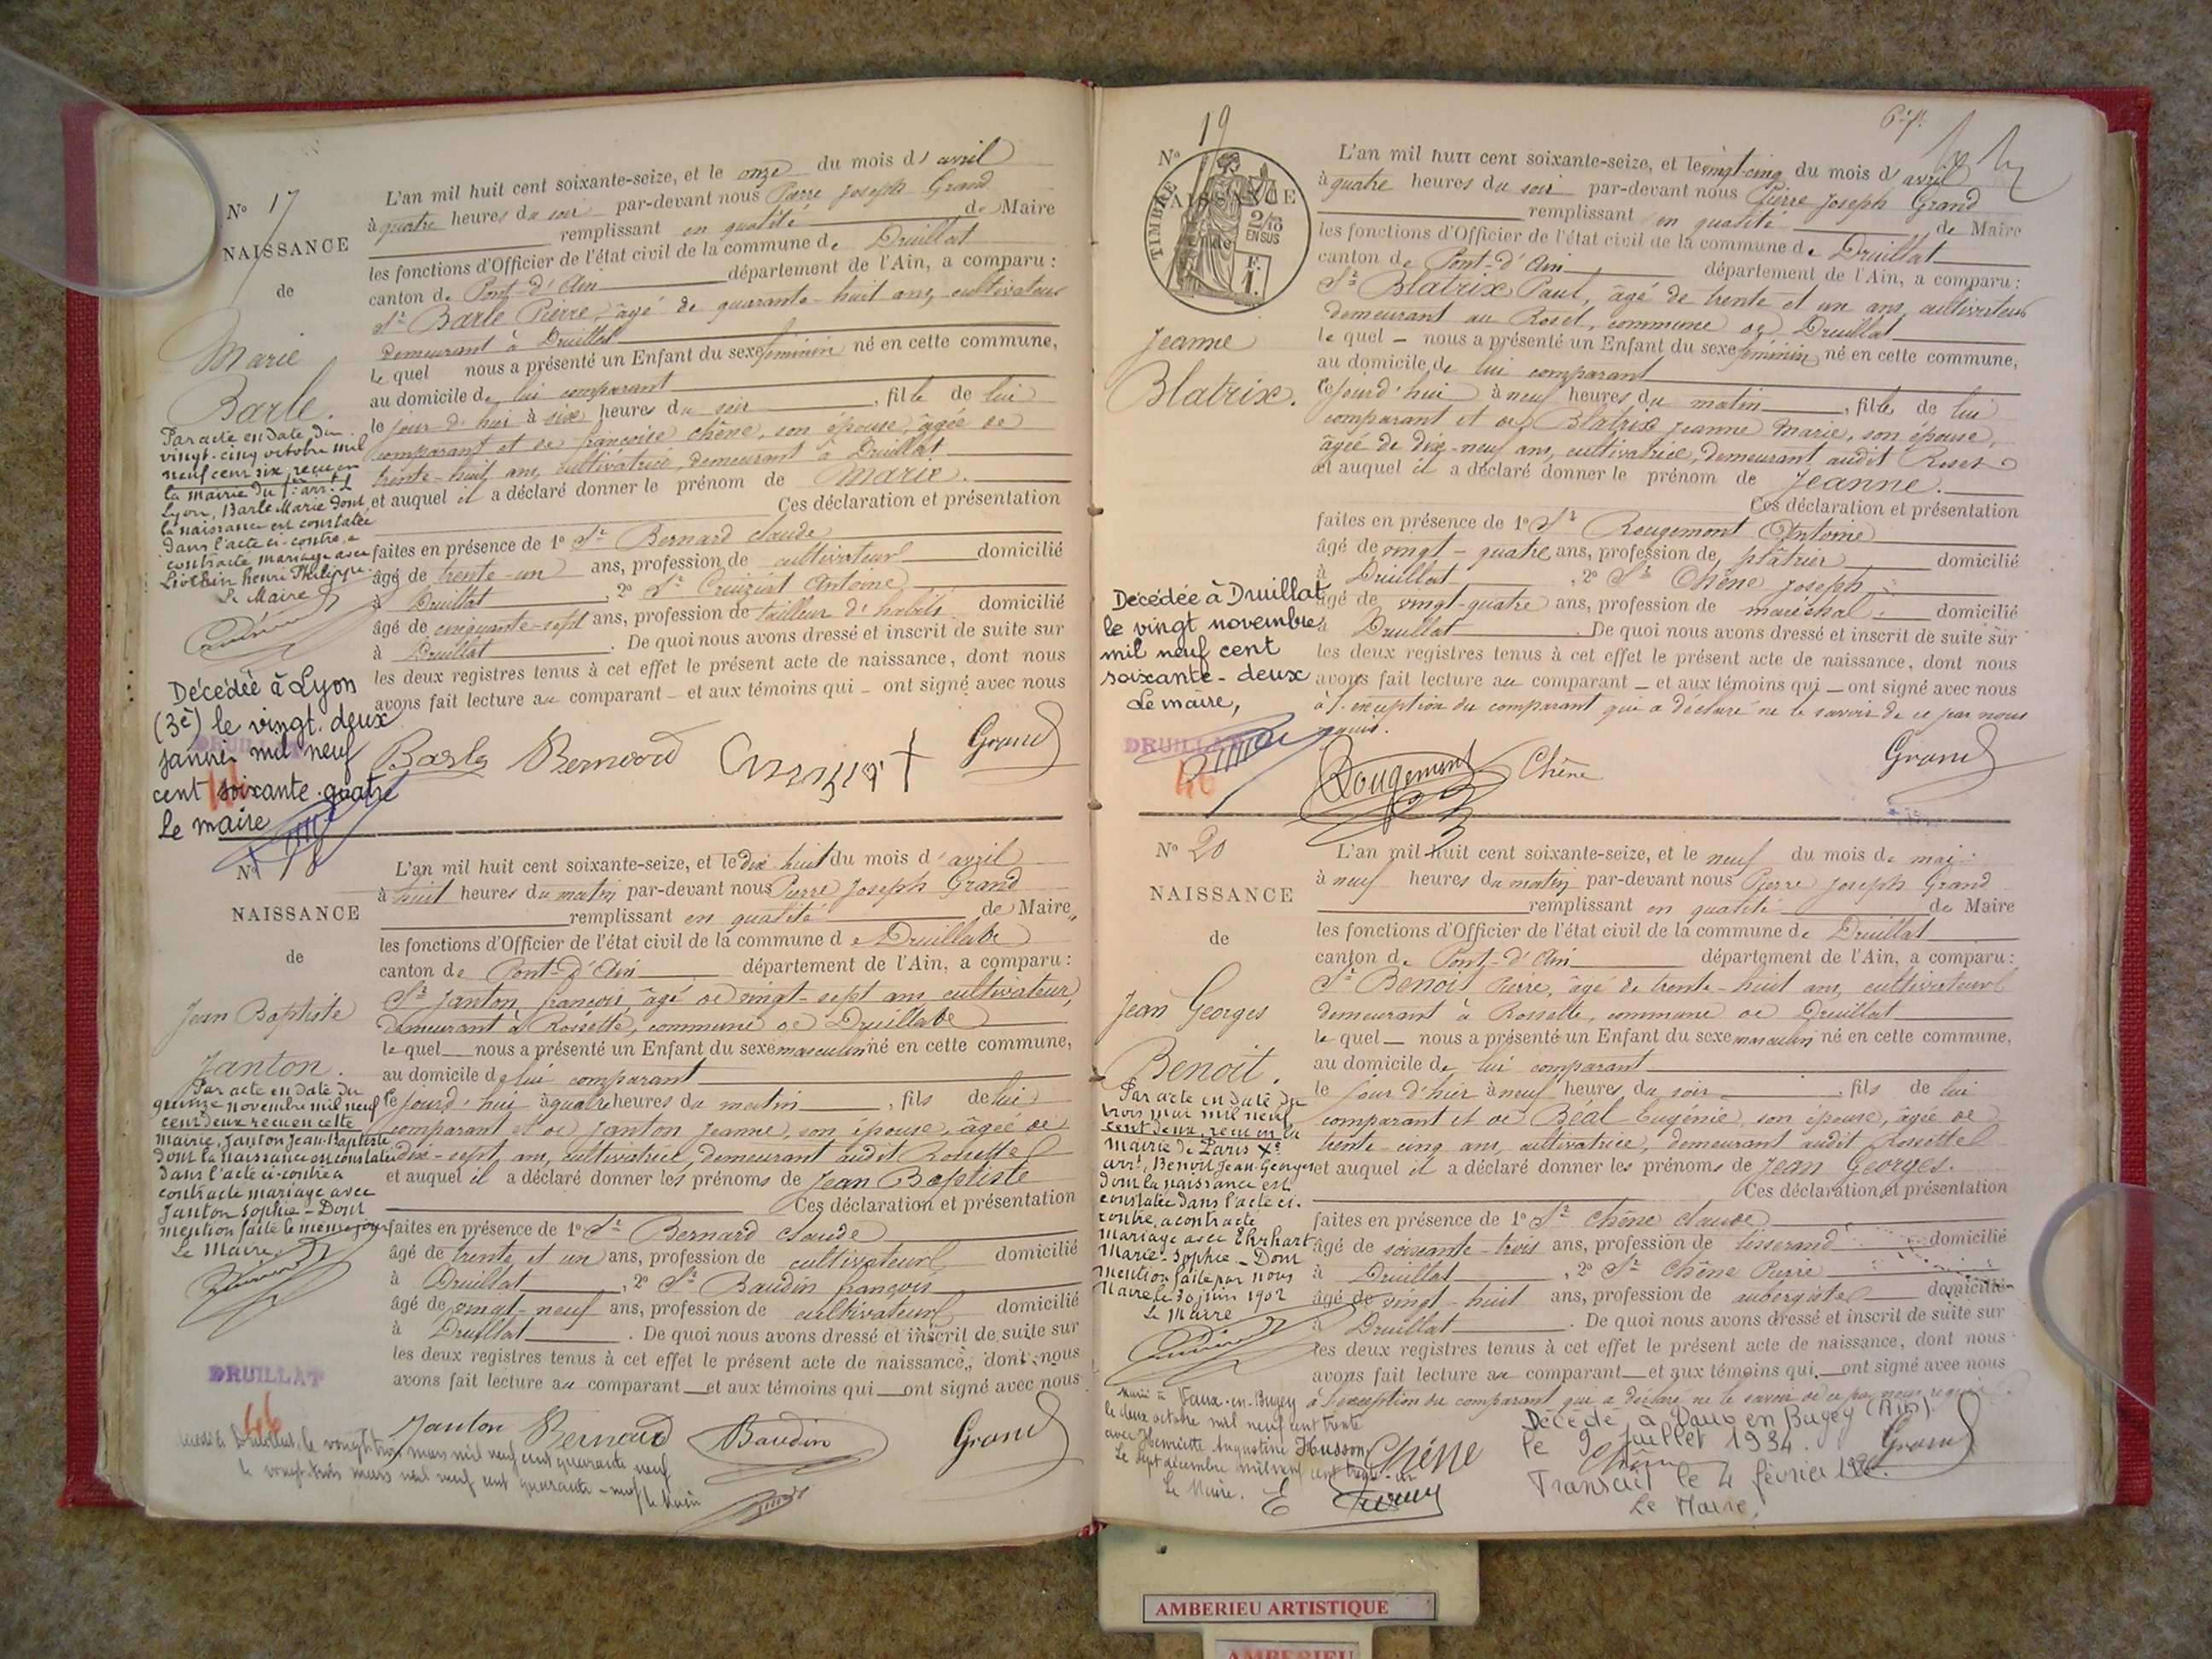 N° 17
NAISSANCE
de
Marie
Barle.
Par acte en date du
vingt-cinq octobre mil
neuf cent six, reçu en
la mairie du arrt
Lyon, Barle Marie dont
la naissance est constatée
dans l'acte ci-contre, a
contracté mariage avec
henri Philippe.
Le Maire
Décédée à Lyon
(3e) le vingt-deux
janvier mil neuf
cent soixante-quatre
Le maire
L'an mil huit cent soixante-seize, et le onze du mois d'avril
à quatre heures du soir par-devant nous Pierre Joseph Grand
remplissant en qualité de Maire
les fonctions d'Officier de l'état civil de la commune de Druillat
canton de Pont-d'Ain département de l'Ain, a comparu :
Sr Barle Pierre, âgé de quarante-huit ans, cultivateur
demeurant à Druillat
le quel nous a présenté un Enfant du sexe féminin né en cette commune,
au domicile de lui comparant
le jour d'hui à six heures du soir, fille de lui
comparant et de françoise Chêne, son épouse, âgée de
trente-huit ans, cultivatrice, demeurant à Druillat
et auquel il a déclaré donner le prénom de Marie.
Ces déclaration et présentation
faites en présence de 1° Sr Bernard claude
âgé de trente-un ans, profession de cultivateur domicilié
à Druillat, 2° Sr Antoine
âgé de cinquante-sept ans, profession de tailleur d'habits domicilié
à Druillat. De quoi nous avons dressé et inscrit de suite sur
les deux registres tenus à cet effet le présent acte de naissance, dont nous
avons fait lecture au comparant et aux témoins qui ont signé avec nous
Barle Bernard Grand
N° 18
NAISSANCE
de
Jean Baptiste
Janton.
Par acte en date du
quinze novembre mil neuf
cent deux reçu en cette
mairie, Janton Jean-Baptiste
dont la naissance est constatée
dans l'acte ci-contre a
contracté mariage avec
Janton Sophie - Dont
mention faite le même jour
Le Maire
DRUILLAT
46
L'an mil huit cent soixante-seize, et le dix huit du mois d'avril
à huit heures du matin par-devant nous Pierre Joseph Grand
remplissant en qualité de Maire,
les fonctions d'Officier de l'état civil de la commune d e Druillat
canton de Pont-d'Ain département de l'Ain, a comparu :
Sr Janton françois, âgé de vingt-sept ans, cultivateur,
demeurant à Rossette, commune de Druillat
le quel nous a présenté un Enfant du sexe masculin né en cette commune,
au domicile de lui comparant
le jourd'hui à quatre heures du matin, fils de lui
comparant et de Janton Jeanne, son épouse, âgée de
dix-sept ans, cultivatrice, demeurant audit Rossette
et auquel il a déclaré donner les prénoms de Jean Baptiste
Ces déclaration et présentation
faites en présence de 1° Sr Bernard claude
âgé de trente et un ans, profession de cultivateur domicilié
à Druillat, 2° Sr Baudin françois
âgé de vingt-neuf ans, profession de cultivateur domicilié
à Druillat. De quoi nous avons dressé et inscrit de suite sur
les deux registres tenus à cet effet le présent acte de naissance, dont nous
avons fait lecture au comparant et aux témoins qui ont signé avec nous
Janton Bernard Baudin Grand
décédé à Druillat, le vingt-trois mars mil neuf cent quarante neuf
le vingt-trois mars mil neuf cent quarante-neuf le Maire
N° 19
NAISSANCE
TIMBRE
2/10
EN SUS
F.
1.
Jeanne
Blatrix.
Décédée à Druillat
le vingt novembre
mil neuf cent
soixante-deux
Le maire,
DRUILLAT
46
L'an mil huit cent soixante-seize, et le vingt-cinq du mois d'avril
à quatre heures du soir par-devant nous Pierre Joseph Grand
remplissant en qualité de Maire
les fonctions d'Officier de l'état civil de la commune de Druillat
canton de Pont-d'Ain département de l'Ain, a comparu :
Sr Blatrix Paul, âgé de trente et un ans, cultivateur
demeurant au Roset, commune de Druillat
le quel nous a présenté un Enfant du sexe féminin né en cette commune,
au domicile de lui comparant
ce jourd'hui à neuf heures du matin, fille de lui
comparant et de Blatrix Jeanne Marie, son épouse,
âgée de dix-neuf ans, cultivatrice, demeurant audit Roset
et auquel il a déclaré donner le prénom de Jeanne.
Ces déclaration et présentation
faites en présence de 1° Sr Rougemont Antoine
âgé de vingt-quatre ans, profession de plâtrier domicilié
à Druillat, 2° Sr Chêne Joseph
âgé de vingt-quatre ans, profession de maréchal domicilié
à Druillat. De quoi nous avons dressé et inscrit de suite sur
les deux registres tenus à cet effet le présent acte de naissance, dont nous
avons fait lecture au comparant et aux témoins qui ont signé avec nous
à l'exception du comparant qui a déclaré ne le savoir de ce par nous
requis.
Rougemont Chêne Grand
N° 20
NAISSANCE
de
Jean Georges
Benoit.
Par acte en date du
trois mai mil neuf
cent deux, reçu en la
mairie de Paris Xe
arrt, Benoit Jean-Georges
dont la naissance est
constatée dans l'acte ci-
contre, a contracté
mariage avec Ehrhart
Marie-Sophie - Dont
mention faite par nous
Maire le 30 juin 1902
Le Maire
L'an mil huit cent soixante-seize, et le neuf du mois de mai
à neuf heures du matin par-devant nous Pierre Joseph Grand
remplissant en qualité de Maire
les fonctions d'Officier de l'état civil de la commune de Druillat
canton de Pont-d'Ain département de l'Ain, a comparu :
Sr Benoit Pierre, âgé de trente-huit ans, cultivateur
demeurant à Rossette, commune de Druillat
le quel nous a présenté un Enfant du sexe masculin né en cette commune,
au domicile de lui comparant
le jour d'hier à neuf heures du soir, fils de lui
comparant et de Béal Eugénie, son épouse, âgée de
trente-cinq ans, cultivatrice, demeurant audit Rossette
et auquel il a déclaré donner les prénoms de Jean Georges.
Ces déclaration et présentation
faites en présence de 1° Sr Chêne claude
âgé de soixante-trois ans, profession de tisserand domicilié
à Druillat, 2° Sr Chêne Pierre
âgé de vingt-huit ans, profession de aubergiste domicilié
à Druillat. De quoi nous avons dressé et inscrit de suite sur
les deux registres tenus à cet effet le présent acte de naissance, dont nous
avons fait lecture au comparant et aux témoins qui ont signé avec nous
à l'exception du comparant qui a déclaré ne le savoir de ce par nous requis.
Marié à Vaux-en-Bugey
le deux octobre mil neuf cent trente
avec Henriette Augustine Husson
Le sept décembre mil neuf cent trente-un
Le Maire.
Chêne
Décédé à Vaux en Bugey (Ain)
le 9 juillet 1934.
Grand
Transcrit le 4 février
Le Maire,
AMBERIEU ARTISTIQUE
AMBERIEU